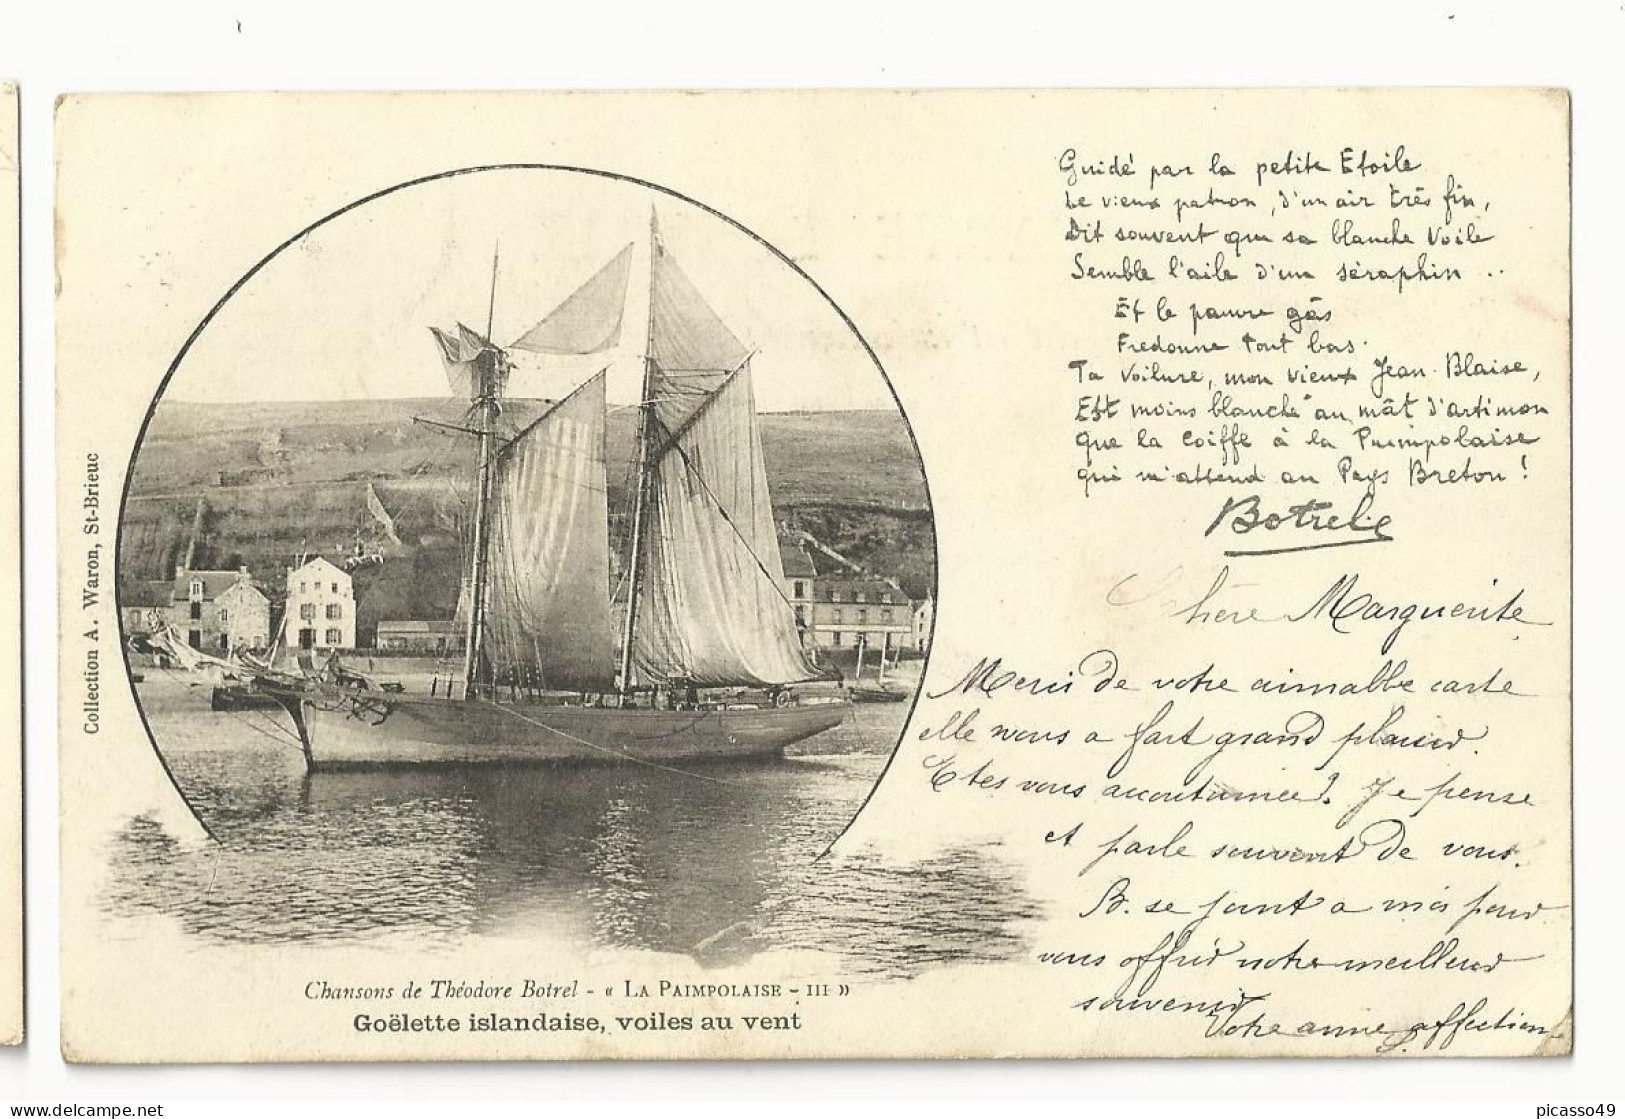 Guidé par la petite Étoile
Le vieux patron, d'un air très fin,
Dit souvent que sa blanche Voile
Semble l'aile d'un séraphin ..
Et le pauvre gâs
Fredonne tout bas.
Ta Voilure, mon vieux Jean-Blaise,
Est moins blanche au mât d'artimon
Que la Coiffe à la Paimpolaise
Qui m'attend au Pays Breton !
Botrel
Chère Marguerite
Merci de votre aimable carte
elle nous a fait grand plaisir.
Etes vous accoutumée? Je pense
et parle souvent de vous.
B. se joint a moi pour
vous offrir notre meilleur
souvenir
Votre amie affection
Collection A. Waron, St-Brieuc
Chansons de Théodore Botrel - « LA PAIMPOLAISE - III »
Goëlette islandaise, voiles au vent
picasso49
www.delcampe.net